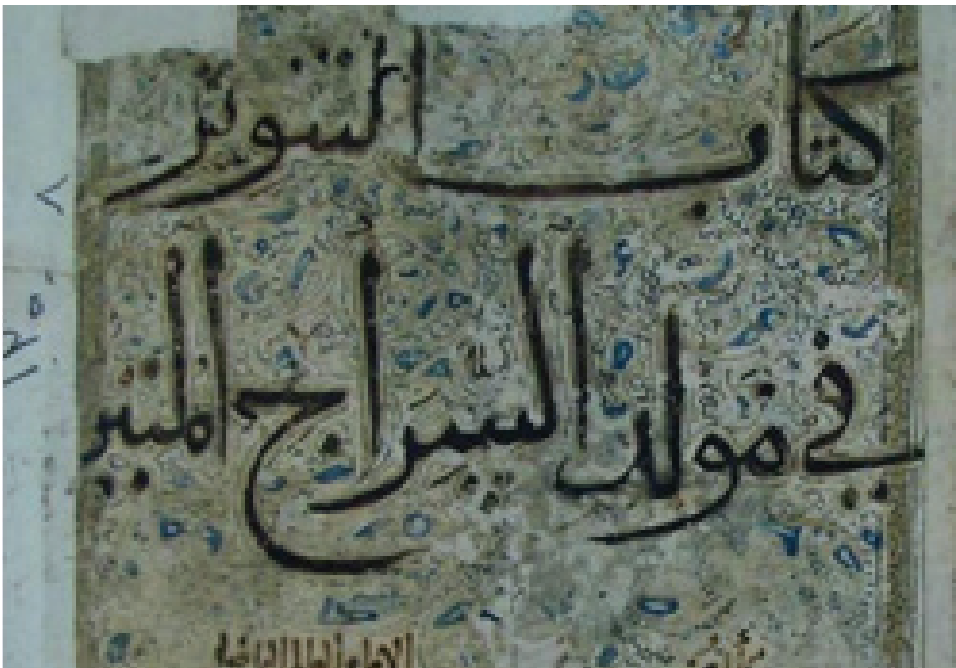 كتاب التنوير
في مولد السراج المنير